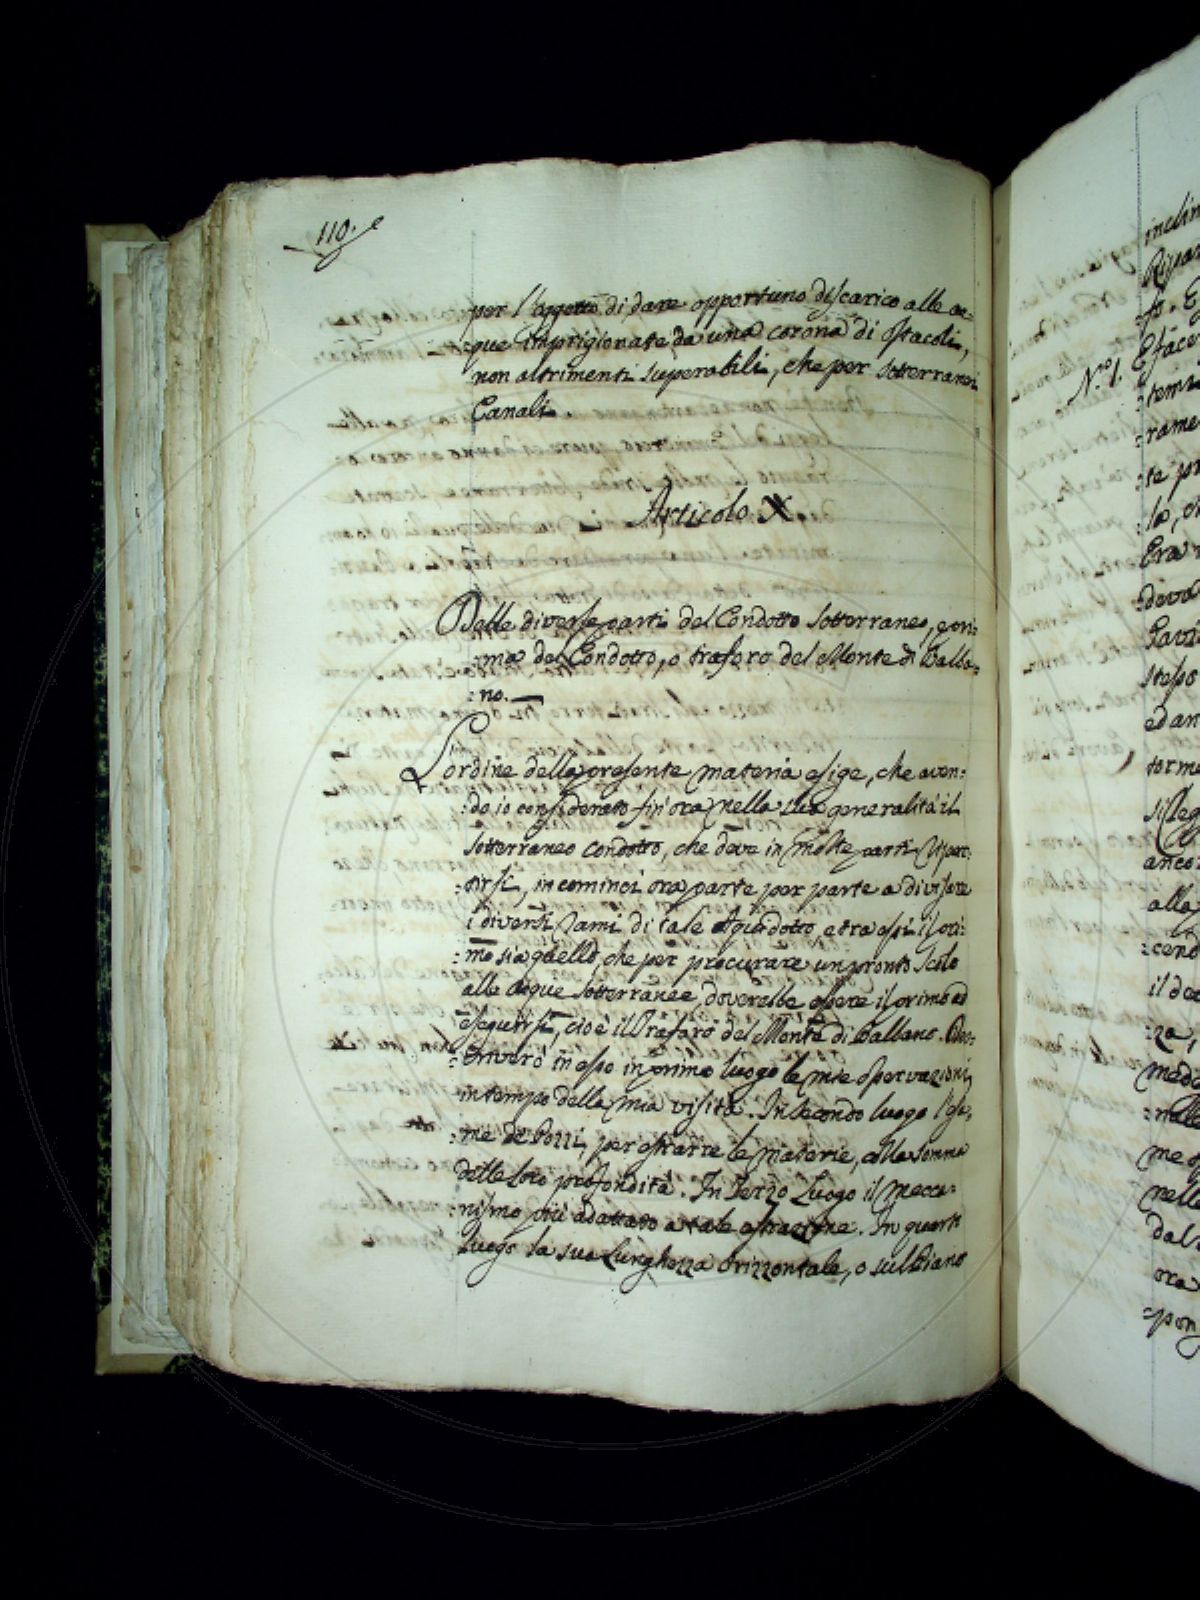 110.
per l'oggetto di dare opportuno discarico alle ac-
:que imprigionate da una corona di ostacoli,
non altrimenti superabili, che per sotterranei
Canali.
Articolo X
Delle diverse parti del Condotto sotterraneo, e pri:
:ma del Condotto, o traforo del Monte di Balba:
:no.
L'ordine della presente materia esige, che aven:
:do io considerato fin'ora nella sua generalità il
sotterraneo condotto, che deve in molte parti
:tirsi, incominci ora parte per parte a divisare
i diversi rami di tale Aquidotto, e tra essi il pri:
:mo sia quello, che per procurare un pronto scolo
alle acque sotterranee, doverebbe essere il primo ad
eseguirsi, cioè il Traforo del Monte di Balbano. Des:
:criverò in esso in primo luogo le mie osservazioni
in tempo della mia visita. In secondo luogo l'esa:
:me de Pozzi, per estrarre le materie, colla somma
delle loro profondità. In Terzo Luogo il mecca:
:nismo più adattato a tale estrazione. In quarto
Luogo la sua Lunghezza Orizzontale, o sul Piano
N.ro 1.